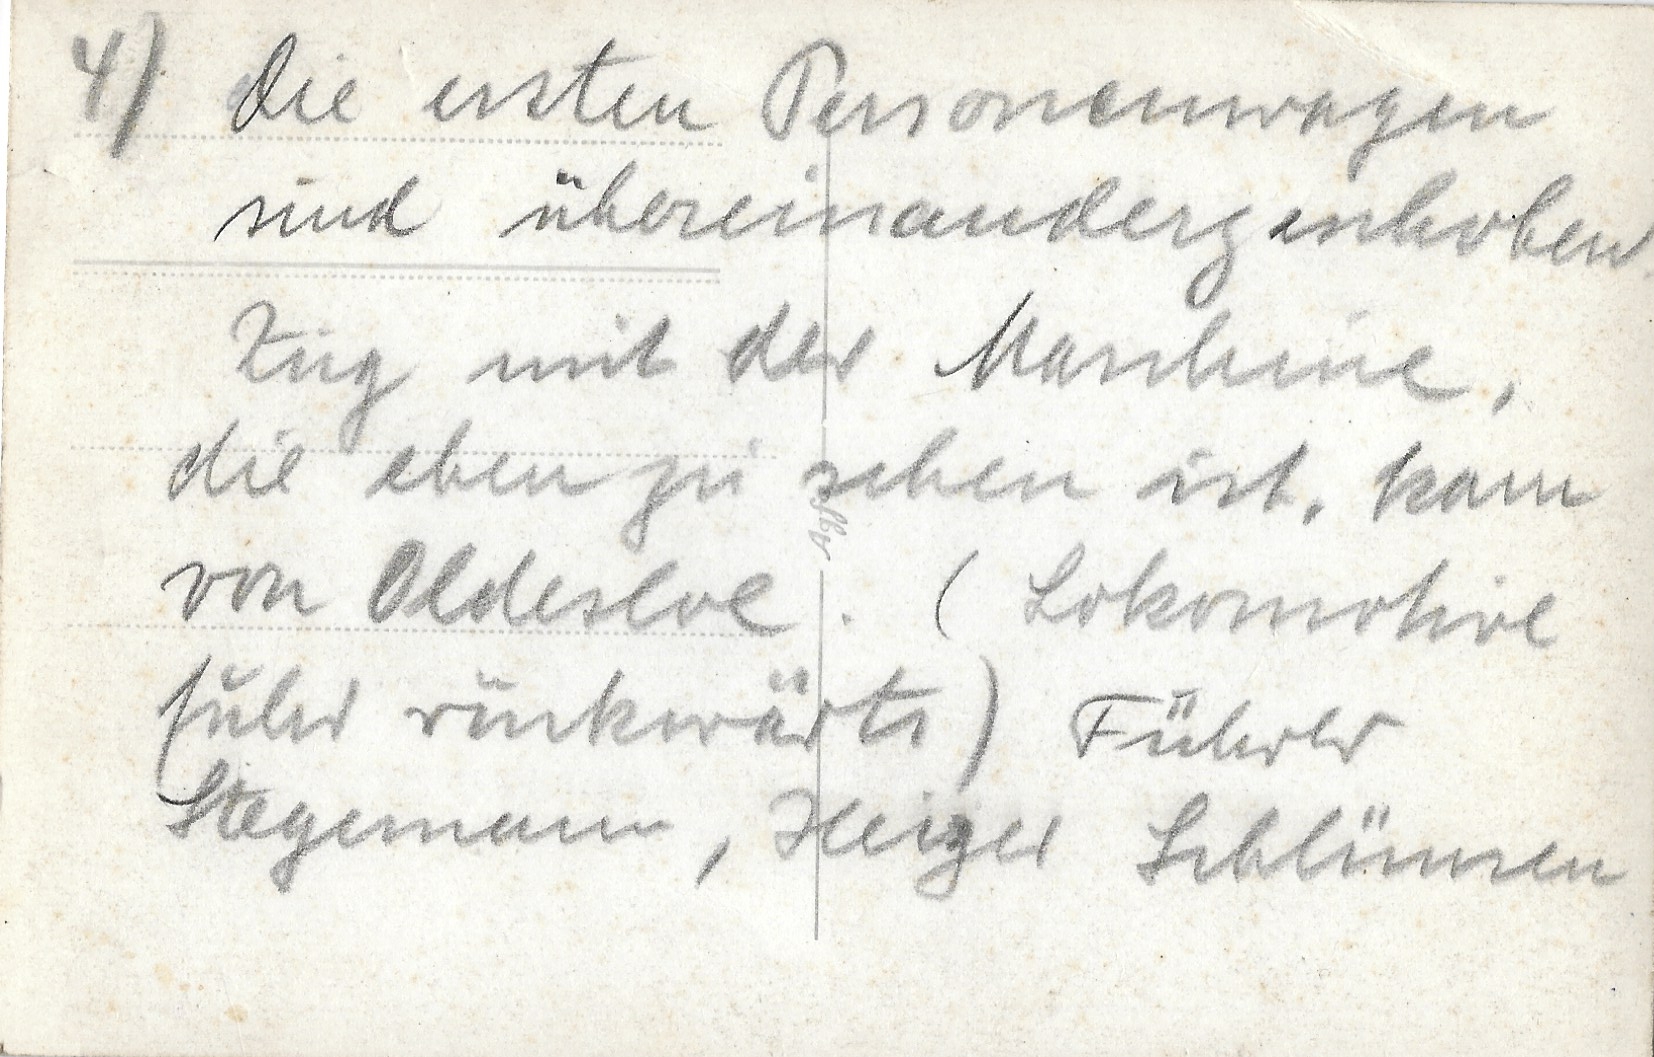 4) Die ersten Personenwagen
sind übereinandergeschoben
Zug mit der Maschine,
die eben zu sehen ist, kam
von Oldesloe. (Lokomotive
fuhr rückwärts) Führer
Stegemann, Heizer Schlünsen